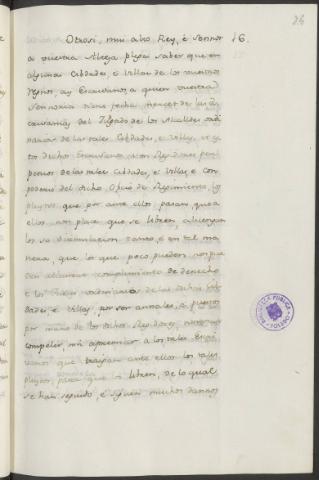 26
Otrosi, mui alto Rey, è Sennor 16.
a vuestra Alteza plega saber que en
algunas Cibdades, è Villas de los vuestros
regnos, ay Escrivanos, a quien vuestra
Sennoria tiene fecha merced de las Es
crivanias del Juzgado de los Alcaldes ordi
narios de las tales Cibdades, è Villas, è es
tos dichos Escrivanos son Regidores perpe
petuos de las tales Cibdades, è Villas, è con
poderio del dicho Oficio de Regimiento, los
pleytos que por ante ellos pasan, que a
ellos non place que se libren, aluengan
los so disimulacion danno, è en tal ma
nera, que los que poco pueden non pue
den alcanzar complimiento de derecho
è los Jueces ordinarios de las dichas Cib
dades, è Villas, por ser annales, è puestos
por mano de los dichos Regidores, non
compelir, nin apremiar a los tales Escri
vanos que traygan ante ellos los tales
pleytos, para que los libren, de lo qual
se han seguido, è siguen muchos dannos
BIBLIOTECA PUBLICA
TOLEDO